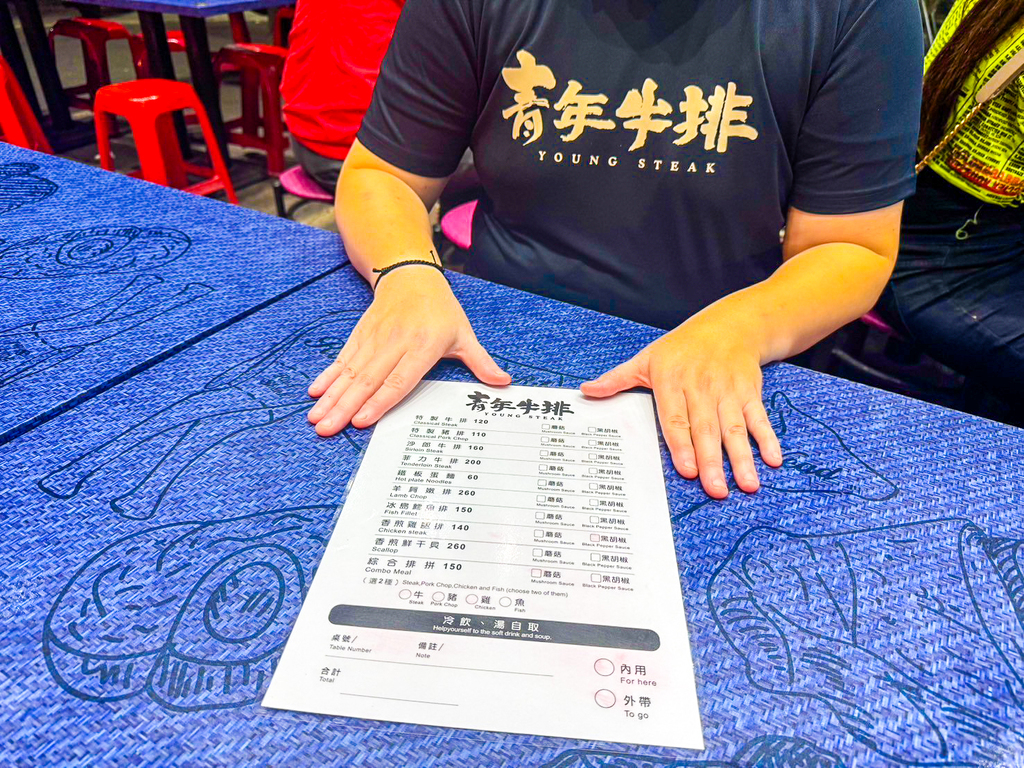 青年牛排
YOUNG STEAK
青年牛排
YOUNG STEAK
特製牛排 120 蘑菇 黑胡椒
Classical Steak Mushroom Sauce Black Pepper Sauce
特製豬排 110 蘑菇 黑胡椒
Classical Pork Chop Mushroom Sauce Black Pepper Sauce
沙郎牛排 160 蘑菇 黑胡椒
Sirloin Steak Mushroom Sauce Black Pepper Sauce
菲力牛排 200 蘑菇 黑胡椒
Tenderloin Steak Mushroom Sauce Black Pepper Sauce
鐵板蛋麵 60 蘑菇 黑胡椒
Hot plate Noodles Mushroom Sauce Black Pepper Sauce
羊肩嫩排 260 蘑菇 黑胡椒
Lamb Chop Mushroom Sauce Black Pepper Sauce
冰島鱈魚排 150 蘑菇 黑胡椒
Fish Fillet Mushroom Sauce Black Pepper Sauce
香煎雞腿排 140 蘑菇 黑胡椒
Chicken steak Mushroom Sauce Black Pepper Sauce
香煎鮮干貝 260 蘑菇 黑胡椒
Scallop Mushroom Sauce Black Pepper Sauce
綜合排拼 150 蘑菇 黑胡椒
Combo Meal Mushroom Sauce Black Pepper Sauce
(選2種) Steak,Pork Chop,Chicken and Fish (choose two of them)
牛 豬 雞 魚
Steak Pork Chop Chicken Fish
冷飲、湯自取
Helpyourself to the soft drink and soup.
桌號/ 備註/
Table Number Note
內用
For here
合計
Total
外帶
To go